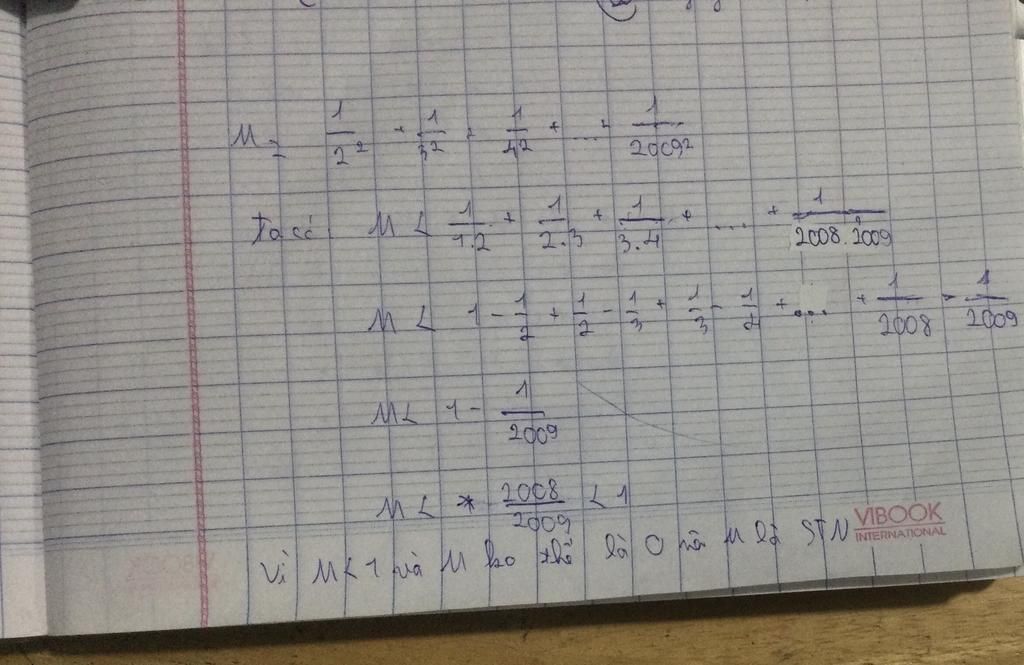 M = 1/2² + 1/3² + 1/4² + ...+ 1/2009²
Ta có: M < 1/1.2 + 1/2.3 + 1/3.4 + .... + 1/2008.2009
M < 1 - 1/2 + 1/2 - 1/3 + 1/3 - 1/4 + ... + 1/2008 - 1/2009
M < 1 - 1/2009
M < 2008/2009 < 1
Vì M < 1 và M ko thể là 0 nên M là STN
VIBOOK
INTERNATIONAL